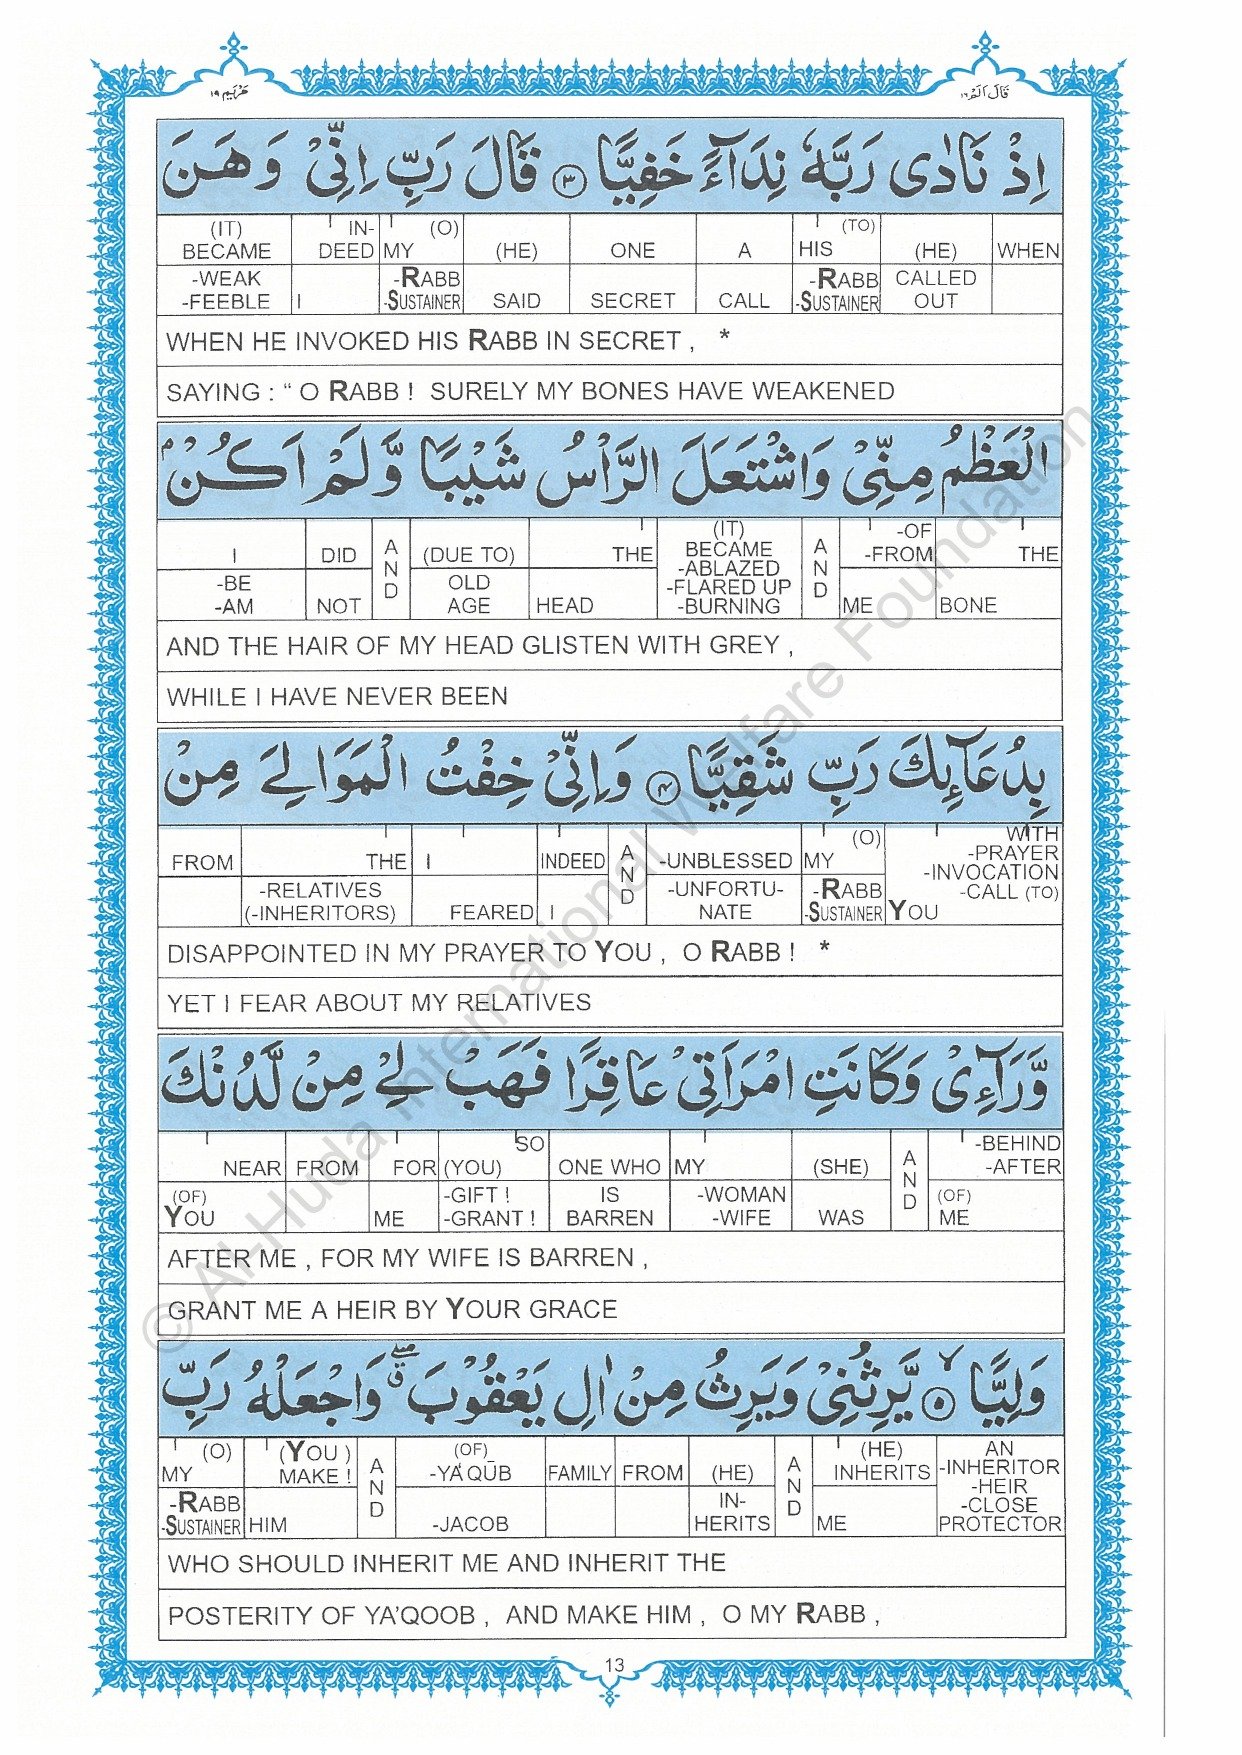 مَرْيَم ١٩ قَالَ اَلَمْ ١٦
اِذْ نَادٰى رَبَّهٗ نِدَآءً خَفِيًّا ٣ قَالَ رَبِّ اِنِّىْ وَهَنَ
(IT) IN- (O) (TO)
BECAME DEED MY (HE) ONE A HIS (HE) WHEN
-WEAK -RABB -RABB CALLED
-FEEBLE I -SUSTAINER SAID SECRET CALL -SUSTAINER OUT
WHEN HE INVOKED HIS RABB IN SECRET , *
SAYING : “ O RABB ! SURELY MY BONES HAVE WEAKENED
الْعَظْمُ مِنِّىْ وَاشْتَعَلَ الرَّاْسُ شَيْبًا وَّلَمْ اَكُنْۢ
(IT) -OF
I DID AND (DUE TO) THE BECAME AND -FROM THE
-ABLAZED
-BE OLD -FLARED UP
-AM NOT AGE HEAD -BURNING ME BONE
AND THE HAIR OF MY HEAD GLISTEN WITH GREY ,
WHILE I HAVE NEVER BEEN
بِدُعَآئِكَ رَبِّ شَقِيًّا ٤ وَاِنِّىْ خِفْتُ الْمَوَالِىَ مِنْ
(O) WITH
FROM THE I INDEED AND -UNBLESSED MY -PRAYER
-INVOCATION
-RELATIVES -UNFORTU- -RABB -CALL (TO)
(-INHERITORS) FEARED I NATE -SUSTAINER YOU
DISAPPOINTED IN MY PRAYER TO YOU , O RABB ! *
YET I FEAR ABOUT MY RELATIVES
وَّرَآءِىْ وَكَانَتِ امْرَاَتِىْ عَاقِرًا فَهَبْ لِىْ مِنْ لَّدُنْكَ
SO -BEHIND
NEAR FROM FOR (YOU) ONE WHO MY (SHE) AND -AFTER
(OF) -GIFT ! IS -WOMAN (OF)
YOU ME -GRANT ! BARREN -WIFE WAS ME
AFTER ME , FOR MY WIFE IS BARREN ,
GRANT ME A HEIR BY YOUR GRACE
وَلِيًّا ٥ يَّرِثُنِىْ وَيَرِثُ مِنْ اٰلِ يَعْقُوْبَ وَاجْعَلْهُ رَبِّ
(O) (YOU ) (OF) (HE) AN
MY MAKE ! AND -YA'QŪB FAMILY FROM (HE) AND INHERITS -INHERITOR
-HEIR
-RABB IN- -CLOSE
-SUSTAINER HIM -JACOB HERITS ME PROTECTOR
WHO SHOULD INHERIT ME AND INHERIT THE
POSTERITY OF YA'QOOB , AND MAKE HIM , O MY RABB ,
13
© Al-Huda International Welfare Foundation